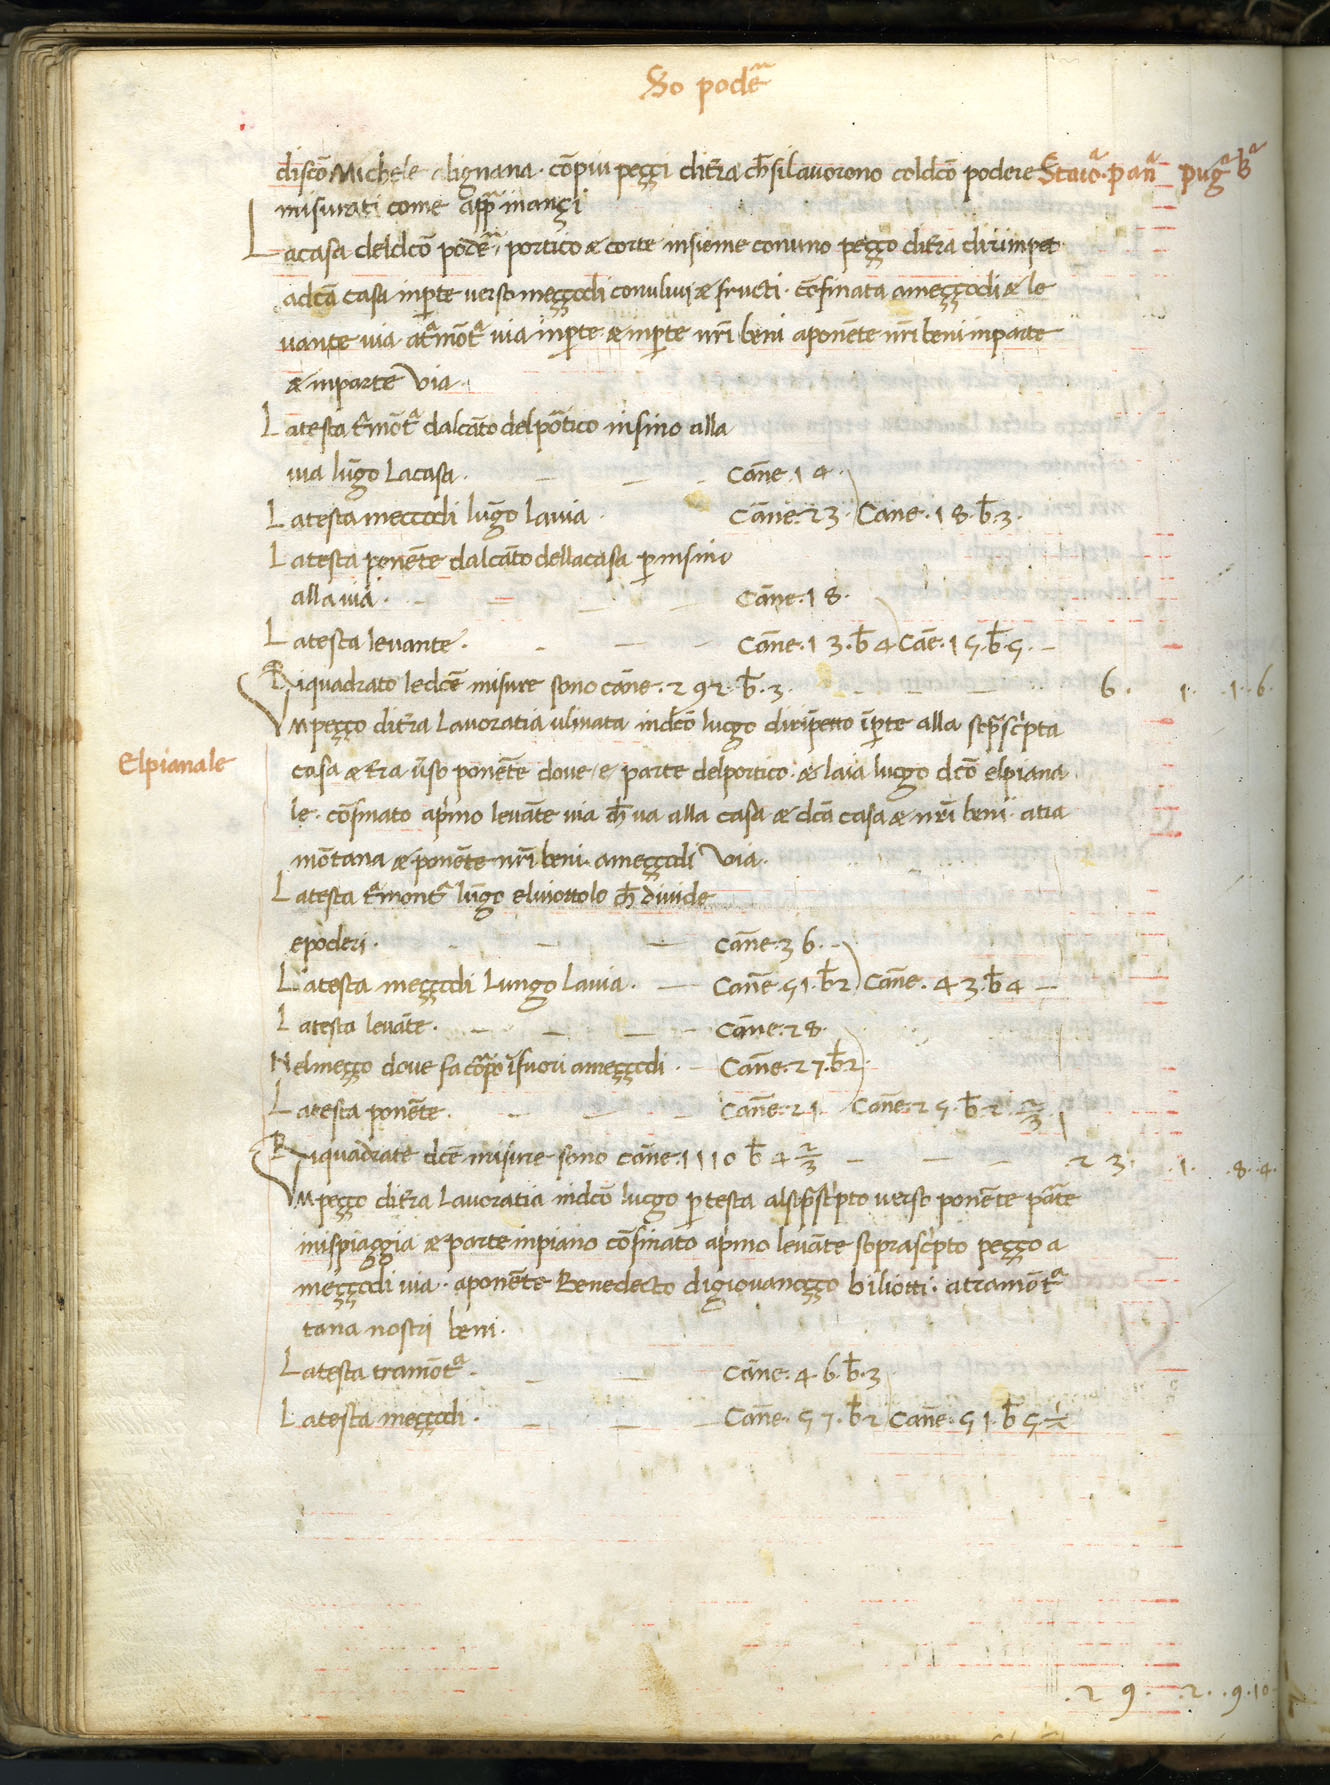 So podẽ
discõ Michele alignana · cõpiu peççi ditr̃a ch̃silauorono coldcõ podere Staio^a · pan^a pug^a b^a
misurati come app̃ inançi
Lacasa deldcõ podẽ, portico & corte insieme conuno peçço ditr̃a dirimpeto
adcã casa inp̱te uerso meççodi conuluui & fructi · cõfinata ameççodi & le
uante uia · atr̃mõt^a uia inp̱te & inp̱te nr̃i beni aponẽte nr̃i beni inparte
& inparte Via ·
Latesta tr̃mõt^a dalcãto delpõtico insino alla
uia lũgo Lacasa · Cãne · 1 4 ·
Latesta meççodi lũgo lauia · Cãne · 23 · Cane · 18 · b̃ · 3 ·
Latesta ponẽte dalcãto dellacasa p̱insino
alla uia · Cãne · 18 ·
Latesta leuante · Cãne · 13 · b̃ 4 Cãe · 15 · b̃ 5 ·
Riquadrato ledcẽ misure sono cãne · 292 · b̃ · 3 · 6 · 1 · 1 · 6 ·
Vmpeçço ditr̃a Lauoratia uliuata indcõ luogo diripetto ĩp̱te alla sop̃scr̃pta
Elpianale
casa & tr̃a ũso ponẽte doue e parte delportico & laia luogo dcõ elpiana
le · cõfinato apr̃mo leuãte uia ch̃ ua alla casa & dcã casa & nr̃i beni · atra
mõtana & ponẽte nr̃i beni · ameççodi Via ·
Latesta tr̃mont^a lũgo eluiottolo ch̃ diuide
epoderi · Cãne · 36 ·
Latesta meççodi Lungo lauia · Cãne · 51 · b̃ 2 Cãne · 43 · b̃ 4
Latesta leuãte · Cãne · 28 ·
Nelmeçço doue fa cõpo ĩfuori ameççodi · Cãne · 27 · b̃ 2 ·
Latesta ponẽte · Cãne · 21 · Cãne · 25 · b̃ · 2 · 2/3
Riquadrate dcẽ misure sono cãne · 1110 b̃ 4 2/3 · 23 · · 1 · · 8 · 4 ·
Vmpeçço ditr̃a Lauoratia indcõ luogo p̱ testa alsop̃scr̃pto uerso ponẽte pãte
inispiaggia & parte inpiano cõfinato apr̃mo leuãte soprascr̃pto peçço a
meççodi uia · aponẽte Benedecto digiouanoçço biliotti · atramõt^a
tana nostri beni ·
Latesta tramõt^a · Cãne · 46 b̃ · 3
Latesta meççodi · Cãne · 57 · b̃ 2 Cãne · 51 · b̃ 5 · 1/2
· 29 · · 2 · · 9 · 10